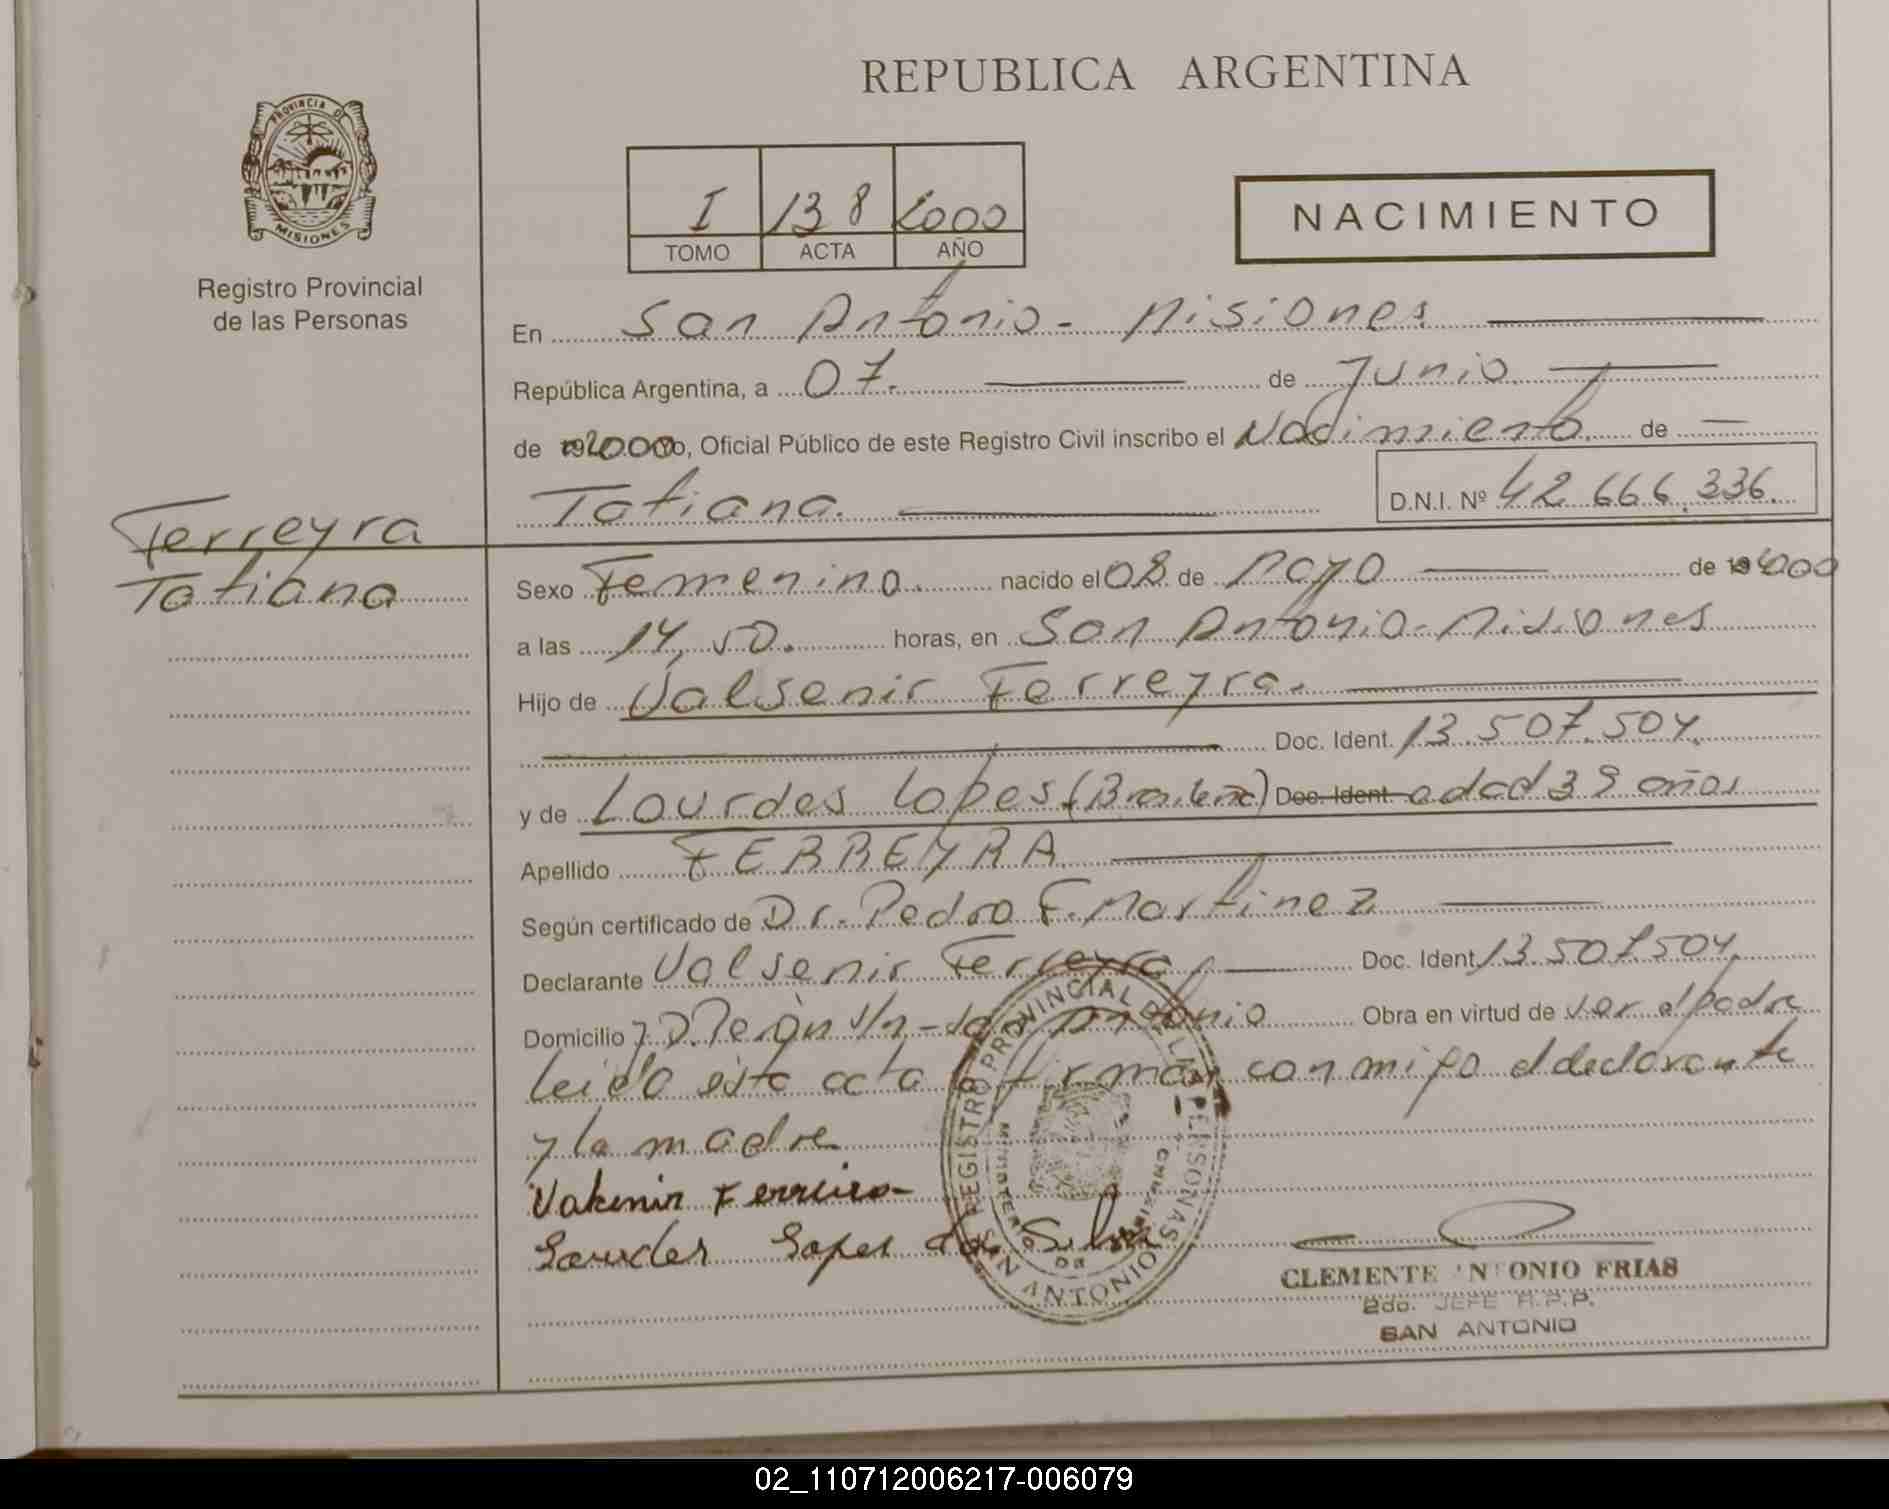 REPUBLICA ARGENTINA
PROVINCIA DE
MISIONES
Registro Provincial
de las Personas
I 138 2000
TOMO ACTA AÑO
NACIMIENTO
En San Antonio - Misiones
República Argentina, a 07. de Junio
de 2000, Oficial Público de este Registro Civil inscribo el Nacimiento de —
Tatiana. D.N.I. Nº 42.666.336.
Ferreyra
Tatiana
Sexo Femenino. nacido el 08 de Mayo de 2000
a las 14,50. horas, en San Antonio - Misiones
Hijo de Valsenir Ferreyra.
Doc. Ident. 13.507.504.
y de Lourdes Lopes (Brasileña) Doc. Ident. edad 39 años
Apellido FERREYRA
Según certificado de Dr. Pedro F. Martinez
Declarante Valsenir Ferreyra Doc. Ident. 13.507.504.
Domicilio J.D. Perón s/n - San Antonio Obra en virtud de ser el padre
leida esta acta firman conmigo el declarante
y la madre
Valsenir Ferreira
Lourdes Lopes da Silva
REGISTRO PROVINCIAL DE LAS PERSONAS
SAN ANTONIO
CLEMENTE ANTONIO FRIAS
2do. JEFE R.P.P.
SAN ANTONIO
02_110712006217-006079